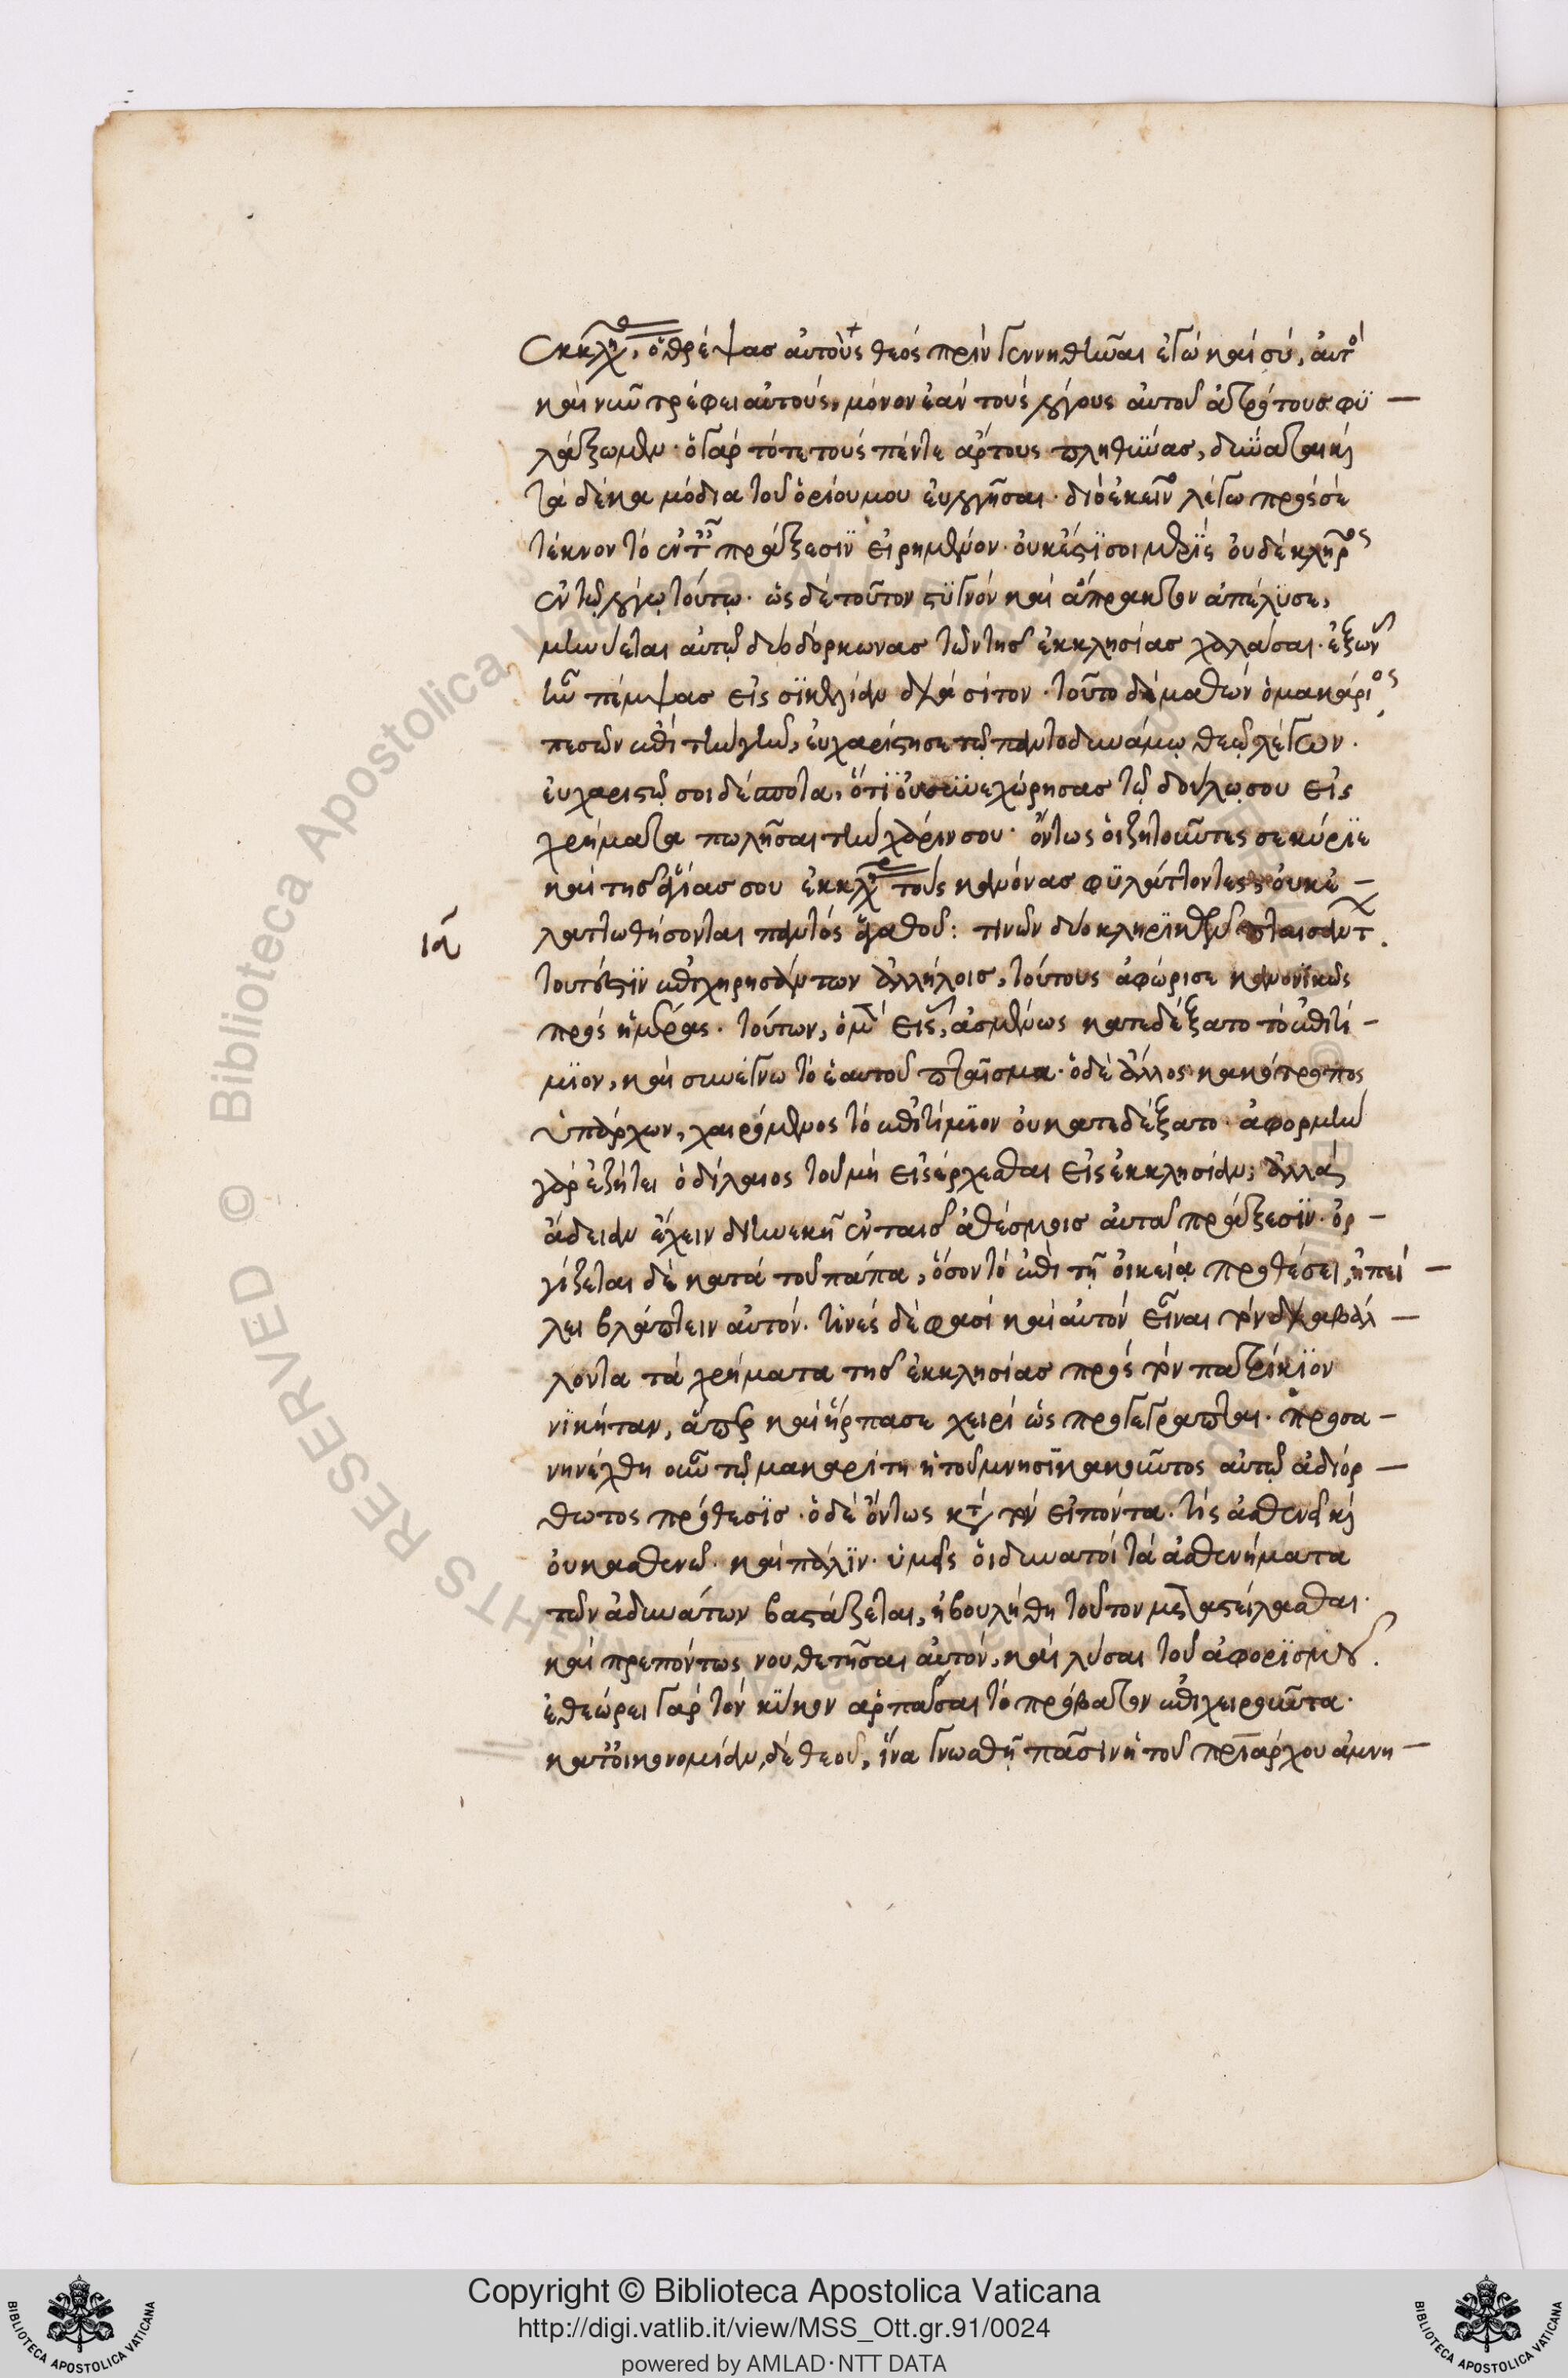 ἐκκλη, ὁ θρέψας αὐτοὺς θεὸς πρὶν γεννηθῆναι ἐγώ καὶ σύ, αὐτὸ
καὶ νῦν τρέφει αὐτούς, μόνον ἐὰν τοὺς λόγους αὐτοῦ ἀτρώτους φυ –
λάξωμεν · ὁ γὰρ τότε τοὺς πέντε ἄρτους πληθύνας, δύναται καὶ
τὰ δέκα μόδια τοῦ ὁρίου μου εὐλογῆσαι · διὸ ἐκεῖνο λέγω πρὸς σὲ
τέκνον τὸ ἐν τ πράξεσιν εἰρημένον · οὐκ ἔστι σοι μερὶς οὐδὲ κλῆρος
ἐν τῷ λόγῳ τούτῳ · ὡς δὲ τοῦτον στυγνὸν καὶ ἄπρακτον ἀπέλυσε,
μηνύεται αὐτῷ δύο δόρκωνας τῶν τῆς ἐκκλησίας χαλάσαι · ἐξ ὧν
ἦν πέμψας εἰς σικελίαν διὰ σῖτον · τοῦτο δὲ μαθὼν ὁ μακάριος
πεσὼν ἐπὶ τὴν γῆν, εὐχαρίστησε τῷ παντοδυνάμῳ θεῷ λέγων ·
εὐχαριστῶ σοι δέσποτα, ὅτι οὐ συνεχώρησας τῷ δούλῳ σου εἰς
χρήματα πωλῆσαι τὴν χάριν σου · ὄντως οἱ ζητοῦντες σε κύριε
καὶ τῆς ἁγίας σου ἐκκλ τοὺς κανόνας φυλάττοντες, οὐκ ἐ –
ια λαττωθήσονται παντὸς ἀγαθοῦ : τινῶν δύο κληρικῶν πταισάντ
τουτέστιν ἐπιχειρησάντων ἀλλήλοις, τούτους ἀφώρισε κανονικῶς
πρὸς ἡμέρας · τούτων, ὁ μὲν εἷς, ἀσμένως κατεδέξατο τὸ ἐπιτί –
μιον, καὶ συνέγνω τὸ ἑαυτοῦ πταῖσμα · ὁ δὲ ἄλλος κακότροπος
ὑπάρχων, χαιρόμενος τὸ ἐπιτίμιον οὐ κατεδέξατο · ἀφορμὴν
γὰρ ἐζήτει ὁ δίλαιος τοῦ μὴ εἰσέρχεσθαι εἰς ἐκκλησίαν, ἀλλὰ
ἄδειαν ἔχειν διηνεκῆ ἐν ταῖς ἀθέσμοις αὐτοῦ πράξεσιν · ὀρ –
γίζεται δὲ κατὰ τοῦ πάπα, ὅσον τὸ ἐπὶ τῇ οἰκείᾳ προθέσει, ἠπεί –
λει βλάπτειν αὐτόν · τινὲς δέ φασι καὶ αὐτὸν εἶναι τὸν διαβάλ –
λοντα τὰ χρήματα τῆς ἐκκλησίας πρὸς τὸν πατρίκιον
νικήταν, ἅπερ καὶ ἥρπασε χειρὶ ὡς προγέγραπται · προσα –
νηνέχθη οὖν τῷ μακαρίτῃ ἡ τοῦ μνησικακοῦντος αὐτῷ ἀδιόρ –
θωτος πρόθεσις · ὁ δὲ ὄντως κατὰ τὸν εἰπόντα · τίς ἀσθενεῖ καὶ
οὐκ ἀσθενῶ · καὶ πάλιν · ὑμεῖς οἱ δυνατοὶ τὰ ἀσθενήματα
τῶν ἀδυνάτων βαστάζεται, ἠβουλήθη τοῦτον μεταστείλασθαι ·
καὶ πρεπόντως νουθετῆσαι αὐτόν, καὶ λῦσαι τοῦ ἀφορισμοῦ.
ἐθεώρει γὰρ τὸν λύκον ἁρπάσαι τὸ πρόβατον ἐπιχειροῦντα ·
κατοικονομίαν, δὲ θεοῦ, ἵνα γνωσθῇ πᾶσιν ἡ τοῦ πριάρχου ἀμνη –
Copyright © Biblioteca Apostolica Vaticana
http://digi.vatlib.it/view/MSS_Ott.gr.91/0024
powered by AMLAD·NTT DATA